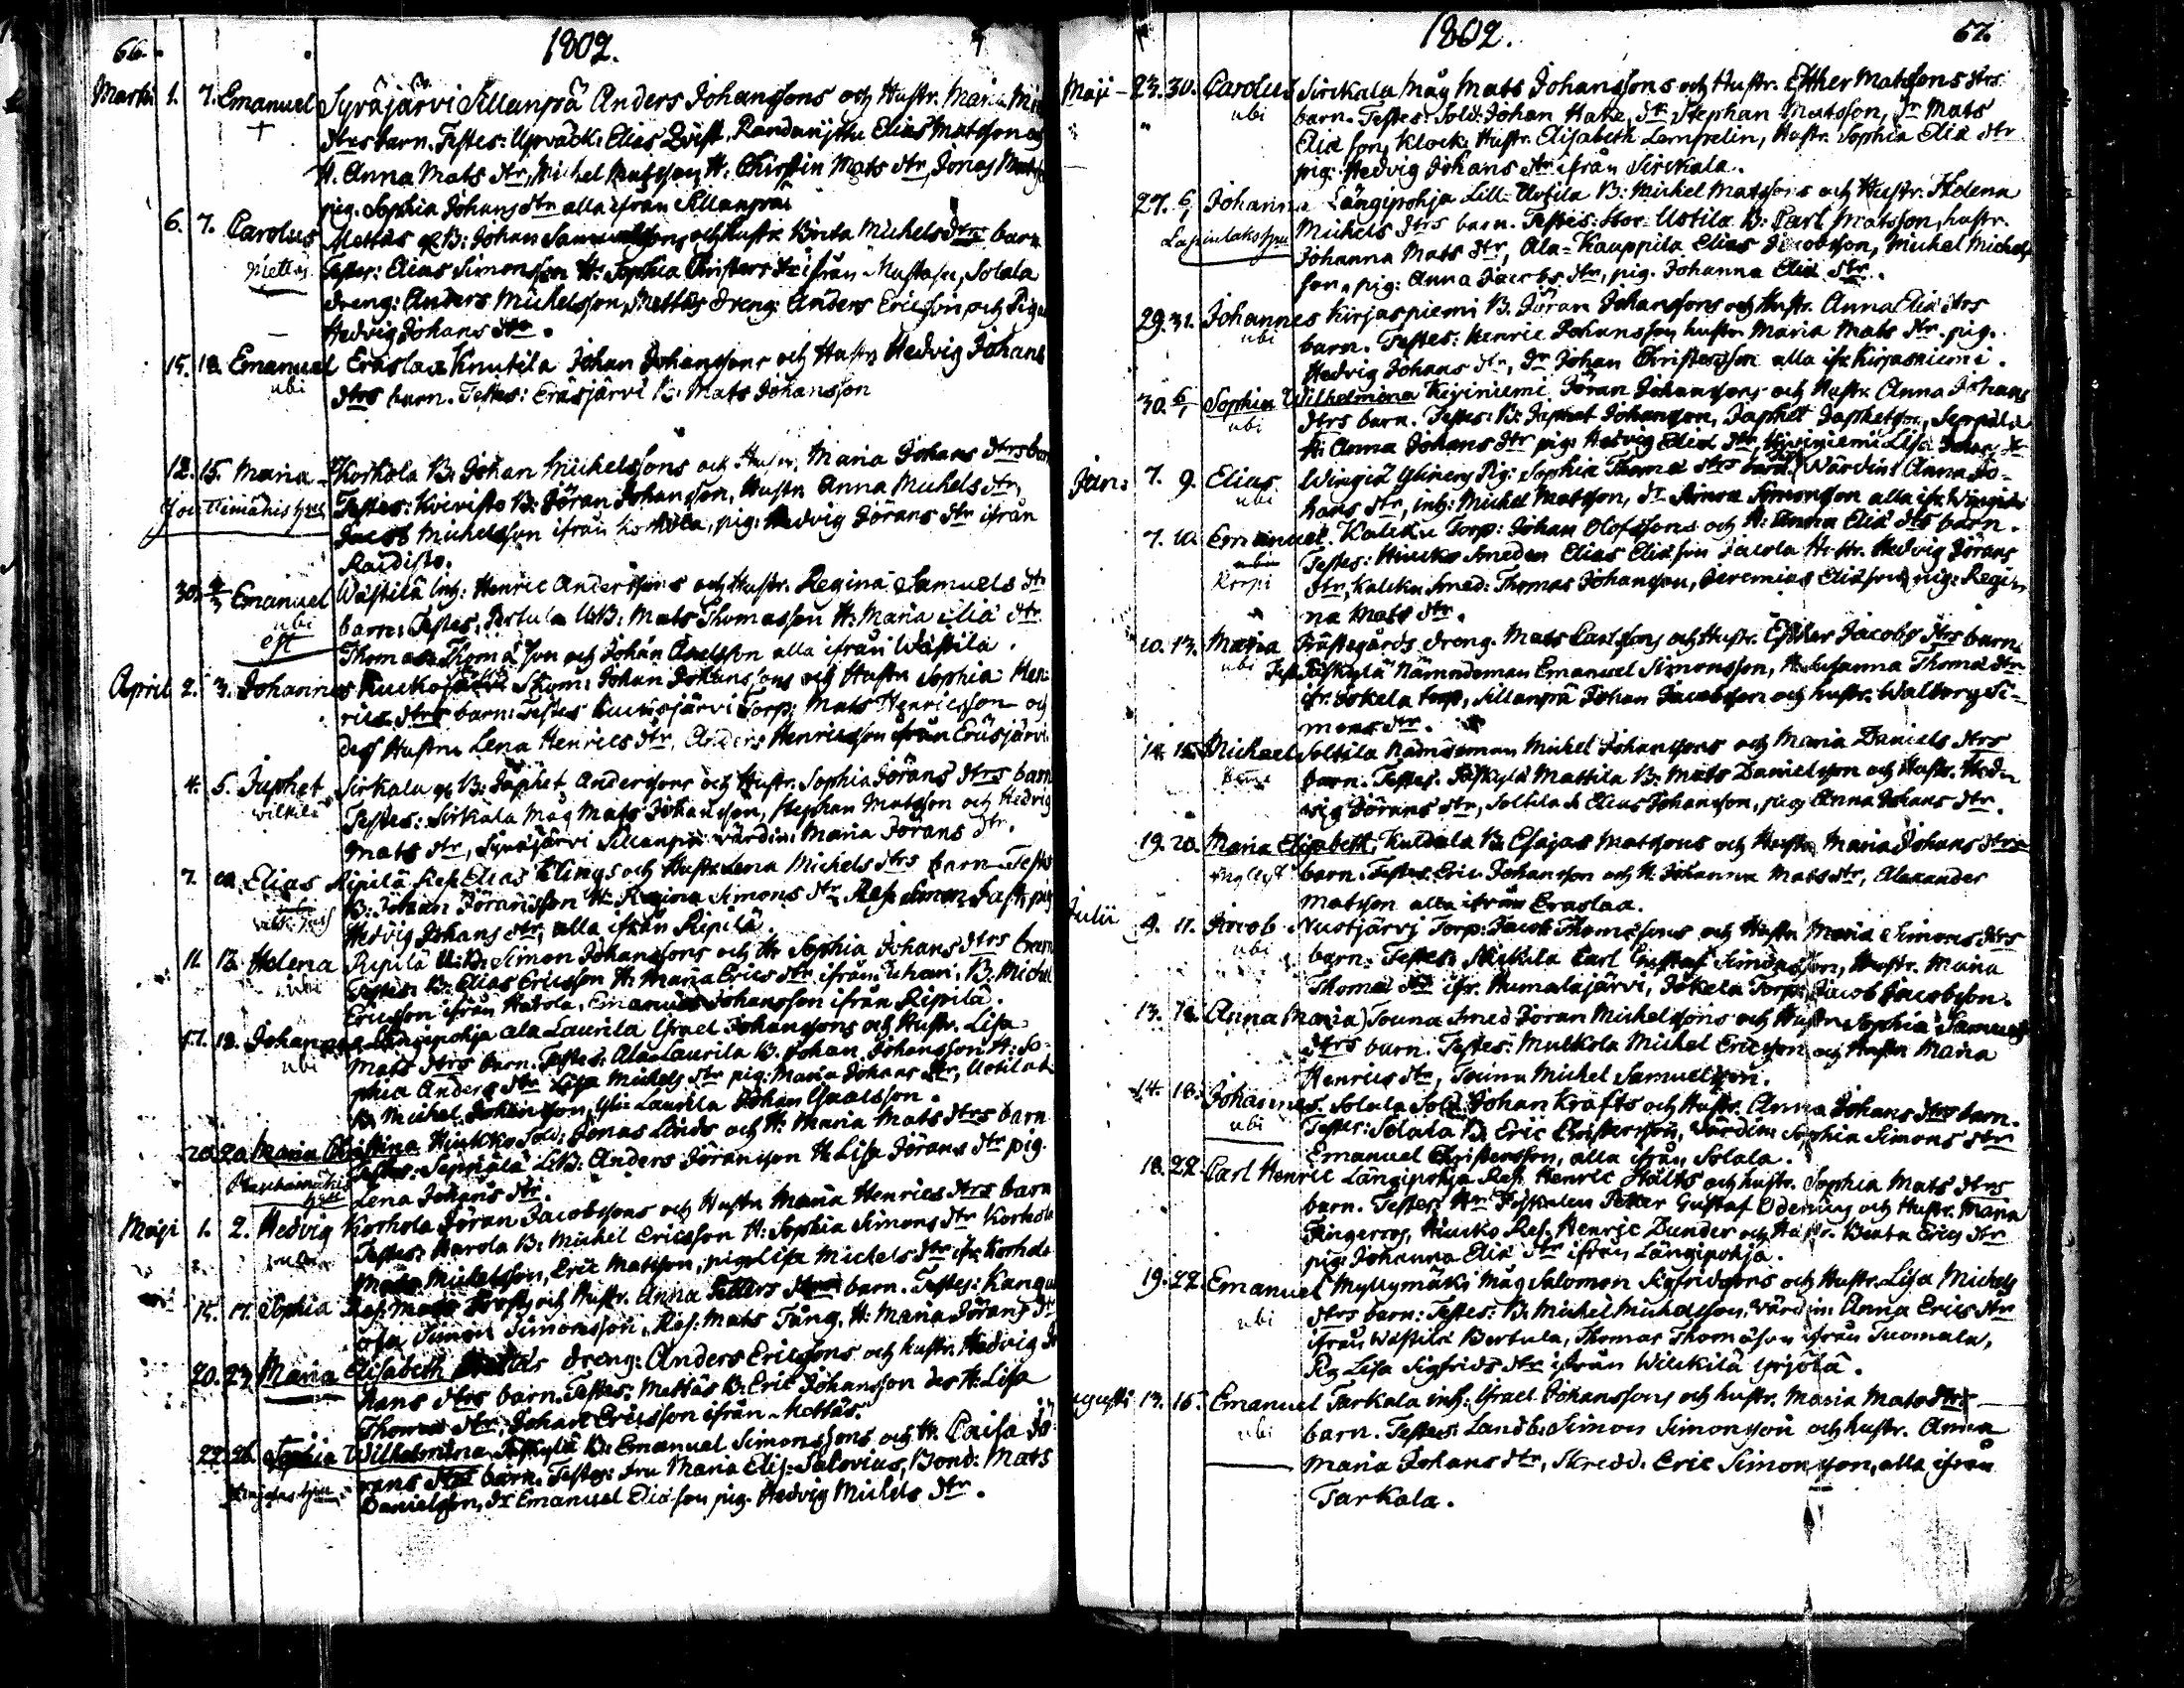 66. 1802.
Martii 1. 7. Emanuel Syräjärvi Sillanpää Anders Johanssons och Hustr. Maria
dtrs barn. Testes: Elias Qvist, Elias Matsson
H. Anna Mats dtr, Michel Matsson, H. Christin Mats dtr, Jonas
pig. Sophia Johans dtr alla ifrån Sillanpää
6. 7. Carolus Mettäs B: Johan Samuelssons och Hustr. Brita Michels dtrs barn
Mettäs Testes: Elias Simonsson H: Sophia Christers dtr ifrån Solala
dreng: Anders Michelsson, Mettäs dreng: Anders Ericsson och Piga
Hedvig Johans dtr.
15. 18. Emanuel Eräslax Knutila Johan Johanssons och Hustr. Hedvig Johans
ubi dtrs barn. Testes: Eräsjärvi B: Mats Johansson
12. 15. Maria Korhola B: Johan Michelssons och Hustr. Maria Johans dtrs barn
Testes: Kivisto B: Jöran Johansson, Hustr. Anna Michels dtr,
Jacob Michelsson ifrån Korhola, pig: Hedvig Jörans dtr ifrån
Raudisto.
30. 4/3 Emanuel Wästilä Inh: Henric Anderssons och Hustr. Regina Samuels dtr
ubi barn. Testes: Pertula B: Mats Thomasson H: Maria Elia dtr
est Thomas Thomasson och Johan Axelsson alla ifrån Wästilä.
April 2. 3. Johannes Kuckojärvi Johan Johanssons och Hustr. Sophia Hen-
rics dtrs barn: Testes Torp: Mats Henricsson och
dess Hustru Lena Henrics dtr, Anders Henricsson ifrån Eräsjärvi
4. 5. Japhet Sirkala B: Japhet Anderssons och Hustr. Sophia Jörans dtrs barn
Testes: Sirkala Måg Mats Johansson, Stephan Matsson och Hedvig
Mats dtr, Syräjärvi Sillanpää värdin: Maria Jörans dtr.
7. 10. Elias Ripilä Elias Klings och Hustr. Lena Michels dtrs barn Testes
B: Johan Jöransson H: Regina Simons dtr, Simon
Hedvig Johans dtr, alla ifrån Ripilä.
11. 12. Helena Ripilä B: Simon Johanssons och H: Sophia Johans dtrs barn
ubi Testes: B: Elias Ericsson H: Maria Erics dtr ifrån B. Michel
Ericsson ifrån Harola, Emanuel Johansson ifrån Ripilä.
17. 18. Johannes Längipohja Ala Laurila Israel Johanssons och Hustr. Lisa
ubi Mats dtrs barn. Testes: Ala Laurila B. Johan Johansson H: So-
phia Anders dtr Lisa Michels dtr pig: Maria Johans dtr, Uotila
B: Michel Johansson, Yli-Laurila Johan
20. 20. Maria Christina Hiukko Sold: Jonas Linds och H: Maria Mats dtrs barn
Testes: Seppälä B: Anders Jöransson H: Lisa Jörans dtr pig.
Lena Johans dtr.
Maji 1. 2. Hedvig Korhola Jöran Jacobssons och Hustr. Maria Henrics dtrs barn
Testes: Harola B: Michel Ericsson H: Sophia Simons dtr Korhola
Mats Michelsson, Eric Matsson, pig: Lisa Michels dtr ifr. Korhola
15. 17. Sophia Res: Mats och Hustr. Anna Petters dtrs barn. Testes:
Simon Simonsson, Res: Mats Tång, H: Maria Jörans dtr
20. 23. Maria Elisabeth Mettäs dreng: Anders Ericssons och hustr. Hedvig Jo-
hans dtrs barn. Testes: Mettäs B: Eric Johansson des H: Lisa
Thomas dtr, Johan Ericsson ifrån Mettäs.
22. 26. Sophia Wilhelmina Päskylä B: Emanuel Simonssons och H: Caisa Jö-
rans dtrs barn. Testes: Maria Elis: Salovius, Bond: Mats
Danielsson, Dr Emanuel Eliasson pig. Hedvig Michels dtr.
1802. 67.
Maji 23. 30. Carolus Sirckala Måg Mats Johanssons och Hustr. Esther Matssons dtrs
ubi barn. Testes: Sold: Johan Hake, Dr Stephan Matsson, Dr Mats
Eliasson, Klock: Hustr. Elisabeth Hustr. Sophia Elia dtr
pig: Hedvig Johans dtr ifrån Sirckala.
27. 6/1 Johanna Längipohja Lill-Uotila B: Michel Matssons och Hustr. Helena
Michels dtrs barn. Testes: Stor-Uotila B: Carl Matsson, hustr.
Johanna Mats dtr, Ala-Kauppila Elias Jacobsson, Michel Michels-
son, pig: Anna Jacobs dtr, pig. Johanna Elia dtr.
29. 31. Johannes Kirjasniemi B. Jöran Johanssons och Hustr. Anna Elia dtrs
ubi barn. Testes: Henric Johansson hustr. Maria Mats dtr. pig.
Hedvig Johans dtr, Dr Johan Christersson alla ifr. Kirjasniemi.
30. 6/1 Sophia Wilhelmina Kiviniemi Jöran Johanssons och Hustr. Anna Johans
ubi dtrs barn. Testes: B: Japhet Johansson, Japhet Japhetsson, Seppälä
H: Anna Johans dtr pig: Hedvig Elia dtr, Kiviniemi Lisa Johans dtr
Jun: 7. 9. Elias Pig: Sophia Thomas dtrs barn. Wärdin: Anna Jo-
ubi hans dtr, inh: Michel Matsson, Dr Simon Simonsson alla ifr.
7. 10. Emanuel Kaleku Torp: Johan Olofssons och H: Anna Elia dtrs barn.
Testes: Hiucko Smeden Elias Eliasson Jacola Hustr. Hedvig Jörans
Korpi dtr, Kaleku Smed: Thomas Johansson, Jeremias Eliasson, pig: Regi-
na Mats dtr.
10. 13. Maria Prästegårds dreng. Mats Carlssons och Hustr. Esther Jacobs dtrs barn.
ubi Test. Päskylä Nämndeman Emanuel Simonsson, H. Susanna Thomas dtr
ifr. Jokela torp, Sillanpää Johan Jacobsson och hustr. Walborg Si-
mons dtr.
14. 15. Michael Soltila Nämndeman Michel Johanssons och Maria Daniels dtrs
barn. Testes. Päskylä Mattila B: Mats Danielsson och Hustr. Hed-
wig Jörans dtr, Soltila Dr Elias Johansson, pig Anna Johans dtr.
19. 20. Maria Elisabeth, Kuldala B: Esajas Matssons och Hustr. Maria Johans dtrs
barn. Testes. Eric Johansson och H. Johanna Mats dtr, Alexander
Matsson alla ifrån Eraslax.
Julii 9. 11. Jacob Nustjärvj Torp: Jacob Thomassons och Hustr. Maria Simons dtrs
ubi barn. Testes: Skikila Carl Gustaf Simonsson, Hustr. Maria
Thomas dtr ifr. Humalajärvi, Jokela Torp: Jacob Jacobsson.
13. 18. Anna Maria Touna Smed Jöran Michelssons och Hustr. Sophia Samuels
dtrs barn. Testes: Mulkola Michel Ericsson och Hustr. Maria
Henrics dtr, Touna Michel Samuelsson.
14. 18. Johannes Solala Sold: Johan Krafts och Hustr. Anna Johans dtrs barn.
ubi Testes: Solala B: Eric Christersson, Värdin: Sophia Simons dtr
Emanuel Christersson, alla ifrån Solala.
18. 22. Carl Henric Längipohja Res. Henric Stålts och hustr. Sophia Mats dtrs
barn. Testes: Hr Fiskalen Petter Gustaf Öderning och Hustr. Maria
Fingerroos, Hiucko Res: Henric Dunder och Hustr. Beata Erics dtr
pig: Johanna Elia dtr ifrån Längipohja.
19. 22. Emanuel Myllymäki Måg Salomon Sigfridssons och Hustr. Lisa Michels
ubi dtrs barn: Testes: B: Michel Michelsson, Värdin: Anna Erics dtr
ifrån Wästilä Bertula, Thomas Thomasson ifrån Tuomala,
Pig Lisa Sigfrids dtr ifrån Wilckilä Yrjölä.
Augusti 13. 15. Emanuel Tarkala inh: Israel Johanssons och hustr. Maria Mats dtrs
ubi barn. Testes: Landb: Simon Simonsson och hustr. Anna
Maria Johans dtr, Skredd. Eric Simonsson, alla ifrån
Tarkala.